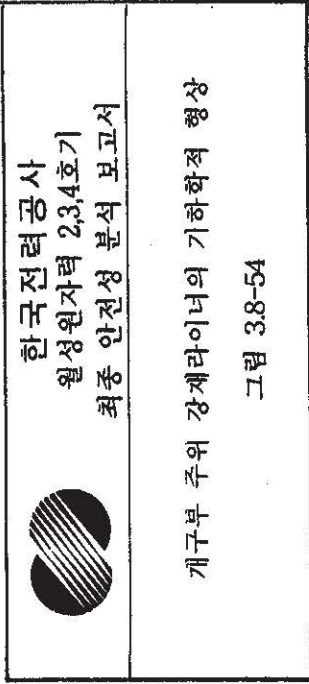 한국전력공사
월성원자력 2,3,4호기
최종 안전성 분석 보고서
개구부 주위 강재라이너의 기하학적 형상
그림 3.8-54